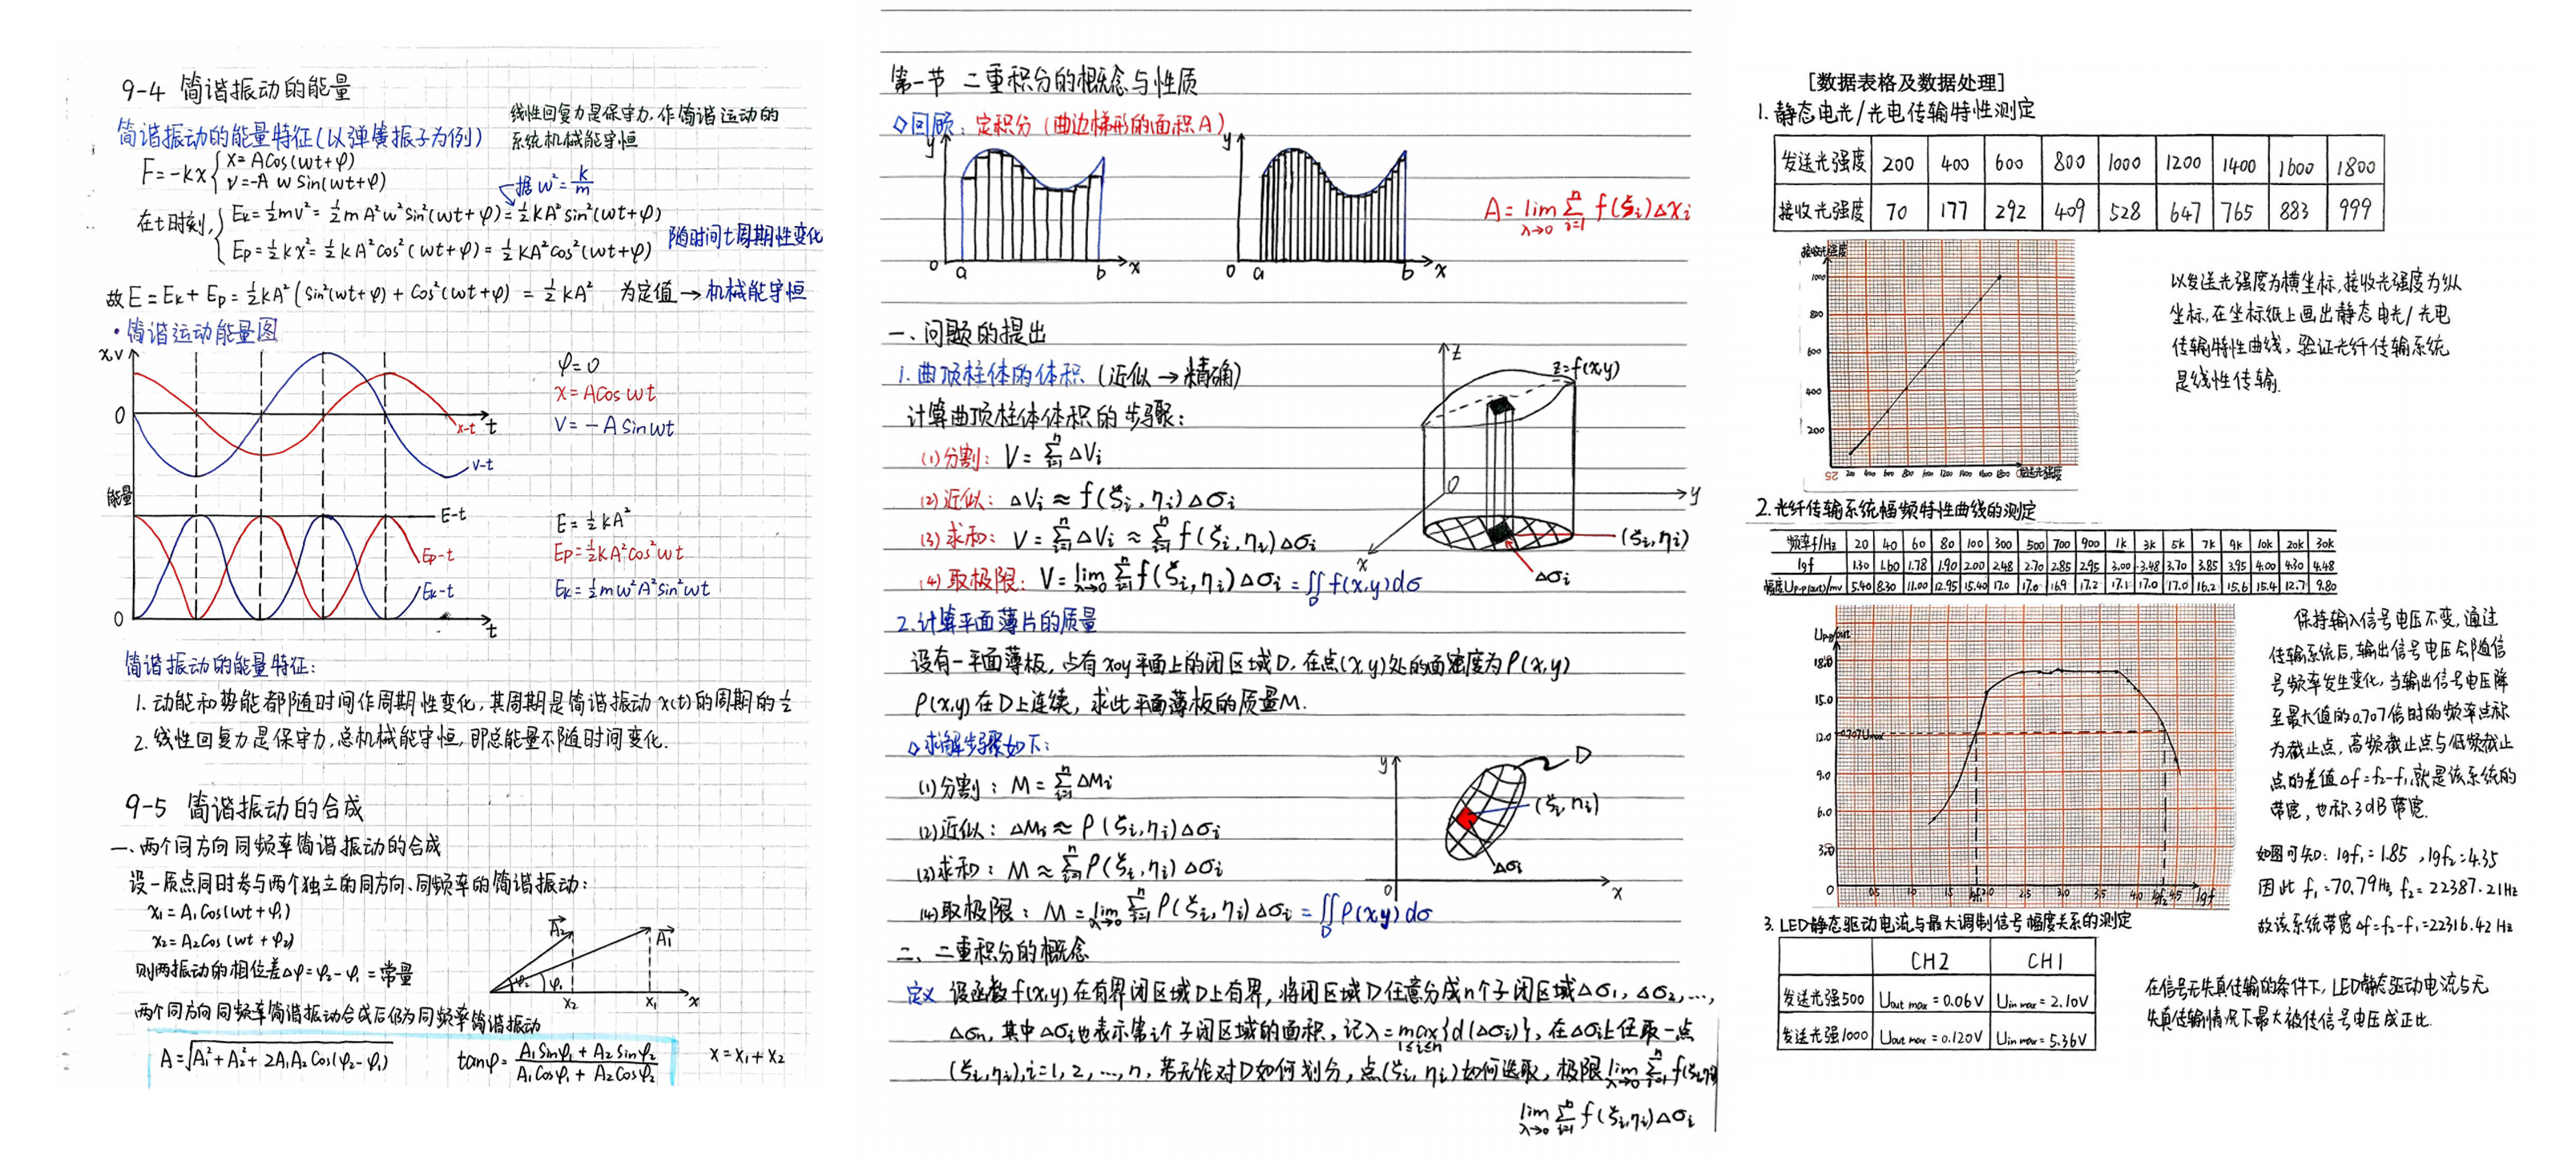 9-4 简谐振动的能量
简谐振动的能量特征(以弹簧振子为例)
线性回复力是保守力,作简谐运动的
系统机械能守恒
F=-kx { x=Acos(wt+φ)
v=-A w Sin(wt+φ)
据 w²=k/m
在t时刻, { Ek=½mv²=½mA²w²sin²(wt+φ)=½KA²sin²(wt+φ)
Ep=½kx²=½kA²cos²(wt+φ)=½KA²cos²(wt+φ)
随时间t周期性变化
故E=Ek+Ep=½kA²(sin²(wt+φ)+cos²(wt+φ)=½kA² 为定值→机械能守恒
·简谐运动能量图
x,v
0
t
x-t
v-t
φ=0
x=Acos wt
V=-A sin wt
能量
E-t
Ep-t
Ek-t
0
t
E=½kA²
Ep=½kA²cos²wt
Ek=½mw²A²sin²wt
简谐振动的能量特征:
1.动能和势能都随时间作周期性变化,其周期是简谐振动x(t)的周期的½
2.线性回复力是保守力,总机械能守恒,即总能量不随时间变化.
9-5 简谐振动的合成
一、两个同方向同频率简谐振动的合成
设一质点同时参与两个独立的同方向、同频率的简谐振动:
x₁=A₁cos(wt+φ₁)
x₂=A₂cos(wt+φ₂)
则两振动的相位差Δφ=φ₂-φ₁=常量
A₂
A₁
φ₂
φ₁
x₂
x₁
x
两个同方向同频率简谐振动合成后仍为同频率简谐振动
A=√(A₁²+A₂²+2A₁A₂cos(φ₂-φ₁)) tanφ=(A₁sinφ₁+A₂sinφ₂)/(A₁cosφ₁+A₂cosφ₂) x=x₁+x₂
第一节 二重积分的概念与性质
◇回顾:定积分(曲边梯形的面积A)
y
0 a b x
y
0 a b x
A=lim(λ→0) Σ(i=1→n) f(ξi)Δxi
一、问题的提出
1.曲顶柱体的体积(近似→精确)
计算曲顶柱体体积的步骤:
(1)分割: V=Σ(i=1→n) ΔVi
(2)近似: ΔVi≈f(ξi,ηi)Δσi
(3)求和: V=Σ(i=1→n) ΔVi≈Σ(i=1→n) f(ξi,ηi)Δσi
(4)取极限: V=lim(λ→0) Σ(i=1→n) f(ξi,ηi)Δσi=∬D f(x,y)dσ
z
z=f(x,y)
O
y
x
(ξi,ηi)
Δσi
2.计算平面薄片的质量
设有一平面薄板,占有xoy平面上的闭区域D,在点(x,y)处的面密度为ρ(x,y)
ρ(x,y)在D上连续,求此平面薄板的质量M.
◇求解步骤如下:
(1)分割: M=Σ(i=1→n) ΔMi
(2)近似: ΔMi≈ρ(ξi,ηi)Δσi
(3)求和: M≈Σ(i=1→n) ρ(ξi,ηi)Δσi
(4)取极限: M=lim(λ→0) Σ(i=1→n) ρ(ξi,ηi)Δσi=∬D ρ(x,y)dσ
y
D
(ξi,ηi)
Δσi
0
x
二、二重积分的概念
定义 设函数f(x,y)在有界闭区域D上有界,将闭区域D任意分成n个子闭区域Δσ₁,Δσ₂,…,
Δσn,其中Δσi也表示第i个子闭区域的面积,记λ=max(1≤i≤n){d(Δσi)},在Δσi上任取一点
(ξi,ηi),i=1,2,…,n,若无论对D如何划分,点(ξi,ηi)如何选取,极限lim(λ→0) Σ(i=1→n) f(ξi,ηi)
lim(λ→0) Σ(i=1→n) f(ξi,ηi)Δσi
[数据表格及数据处理]
1.静态电光/光电传输特性测定
发送光强度 200 400 600 800 1000 1200 1400 1600 1800
接收光强度 70 177 292 409 528 647 765 883 999
接收光强度
1000
800
600
400
200
25
200 400 600 800 1000 1200 1400 1600 1800 发送光强度
以发送光强度为横坐标,接收光强度为纵
坐标,在坐标纸上画出静态电光/光电
传输特性曲线,验证光纤传输系统
是线性传输.
2.光纤传输系统幅频特性曲线的测定
频率f/Hz 20 40 60 80 100 300 500 700 900 1k 3k 5k 7k 9k 10k 20k 30k
lgf 1.30 1.60 1.78 1.90 2.00 2.48 2.70 2.85 2.95 3.00 3.48 3.70 3.85 3.95 4.00 4.30 4.48
幅度Up-p(out)/mv 5.40 8.30 11.00 12.95 15.40 17.0 17.0 16.9 17.2 17.1 17.0 17.0 16.2 15.6 15.4 12.7 9.80
Up-p/out
18.0
15.0
12.0 0.707Umax
9.0
6.0
3.0
0 0.5 1.0 1.5 lgf₁ 2.0 2.5 3.0 3.5 4.0 lgf₂ 4.5 lgf
保持输入信号电压不变,通过
传输系统后,输出信号电压会随信
号频率发生变化,当输出信号电压降
至最大值的0.707倍时的频率点称
为截止点,高频截止点与低频截止
点的差值Δf=f₂-f₁,就是该系统的
带宽,也称3dB带宽.
如图可知: lgf₁=1.85 ,lgf₂=4.35
因此 f₁=70.79Hz, f₂=22387.21Hz
故该系统带宽Δf=f₂-f₁=22316.42Hz
3.LED静态驱动电流与最大调制信号幅度关系的测定
CH2 CH1
发送光强500 Uout max=0.06V Uin max=2.10V
发送光强1000 Uout max=0.120V Uin max=5.36V
在信号无失真传输的条件下,LED静态驱动电流与无
失真传输情况下最大被传信号电压成正比.